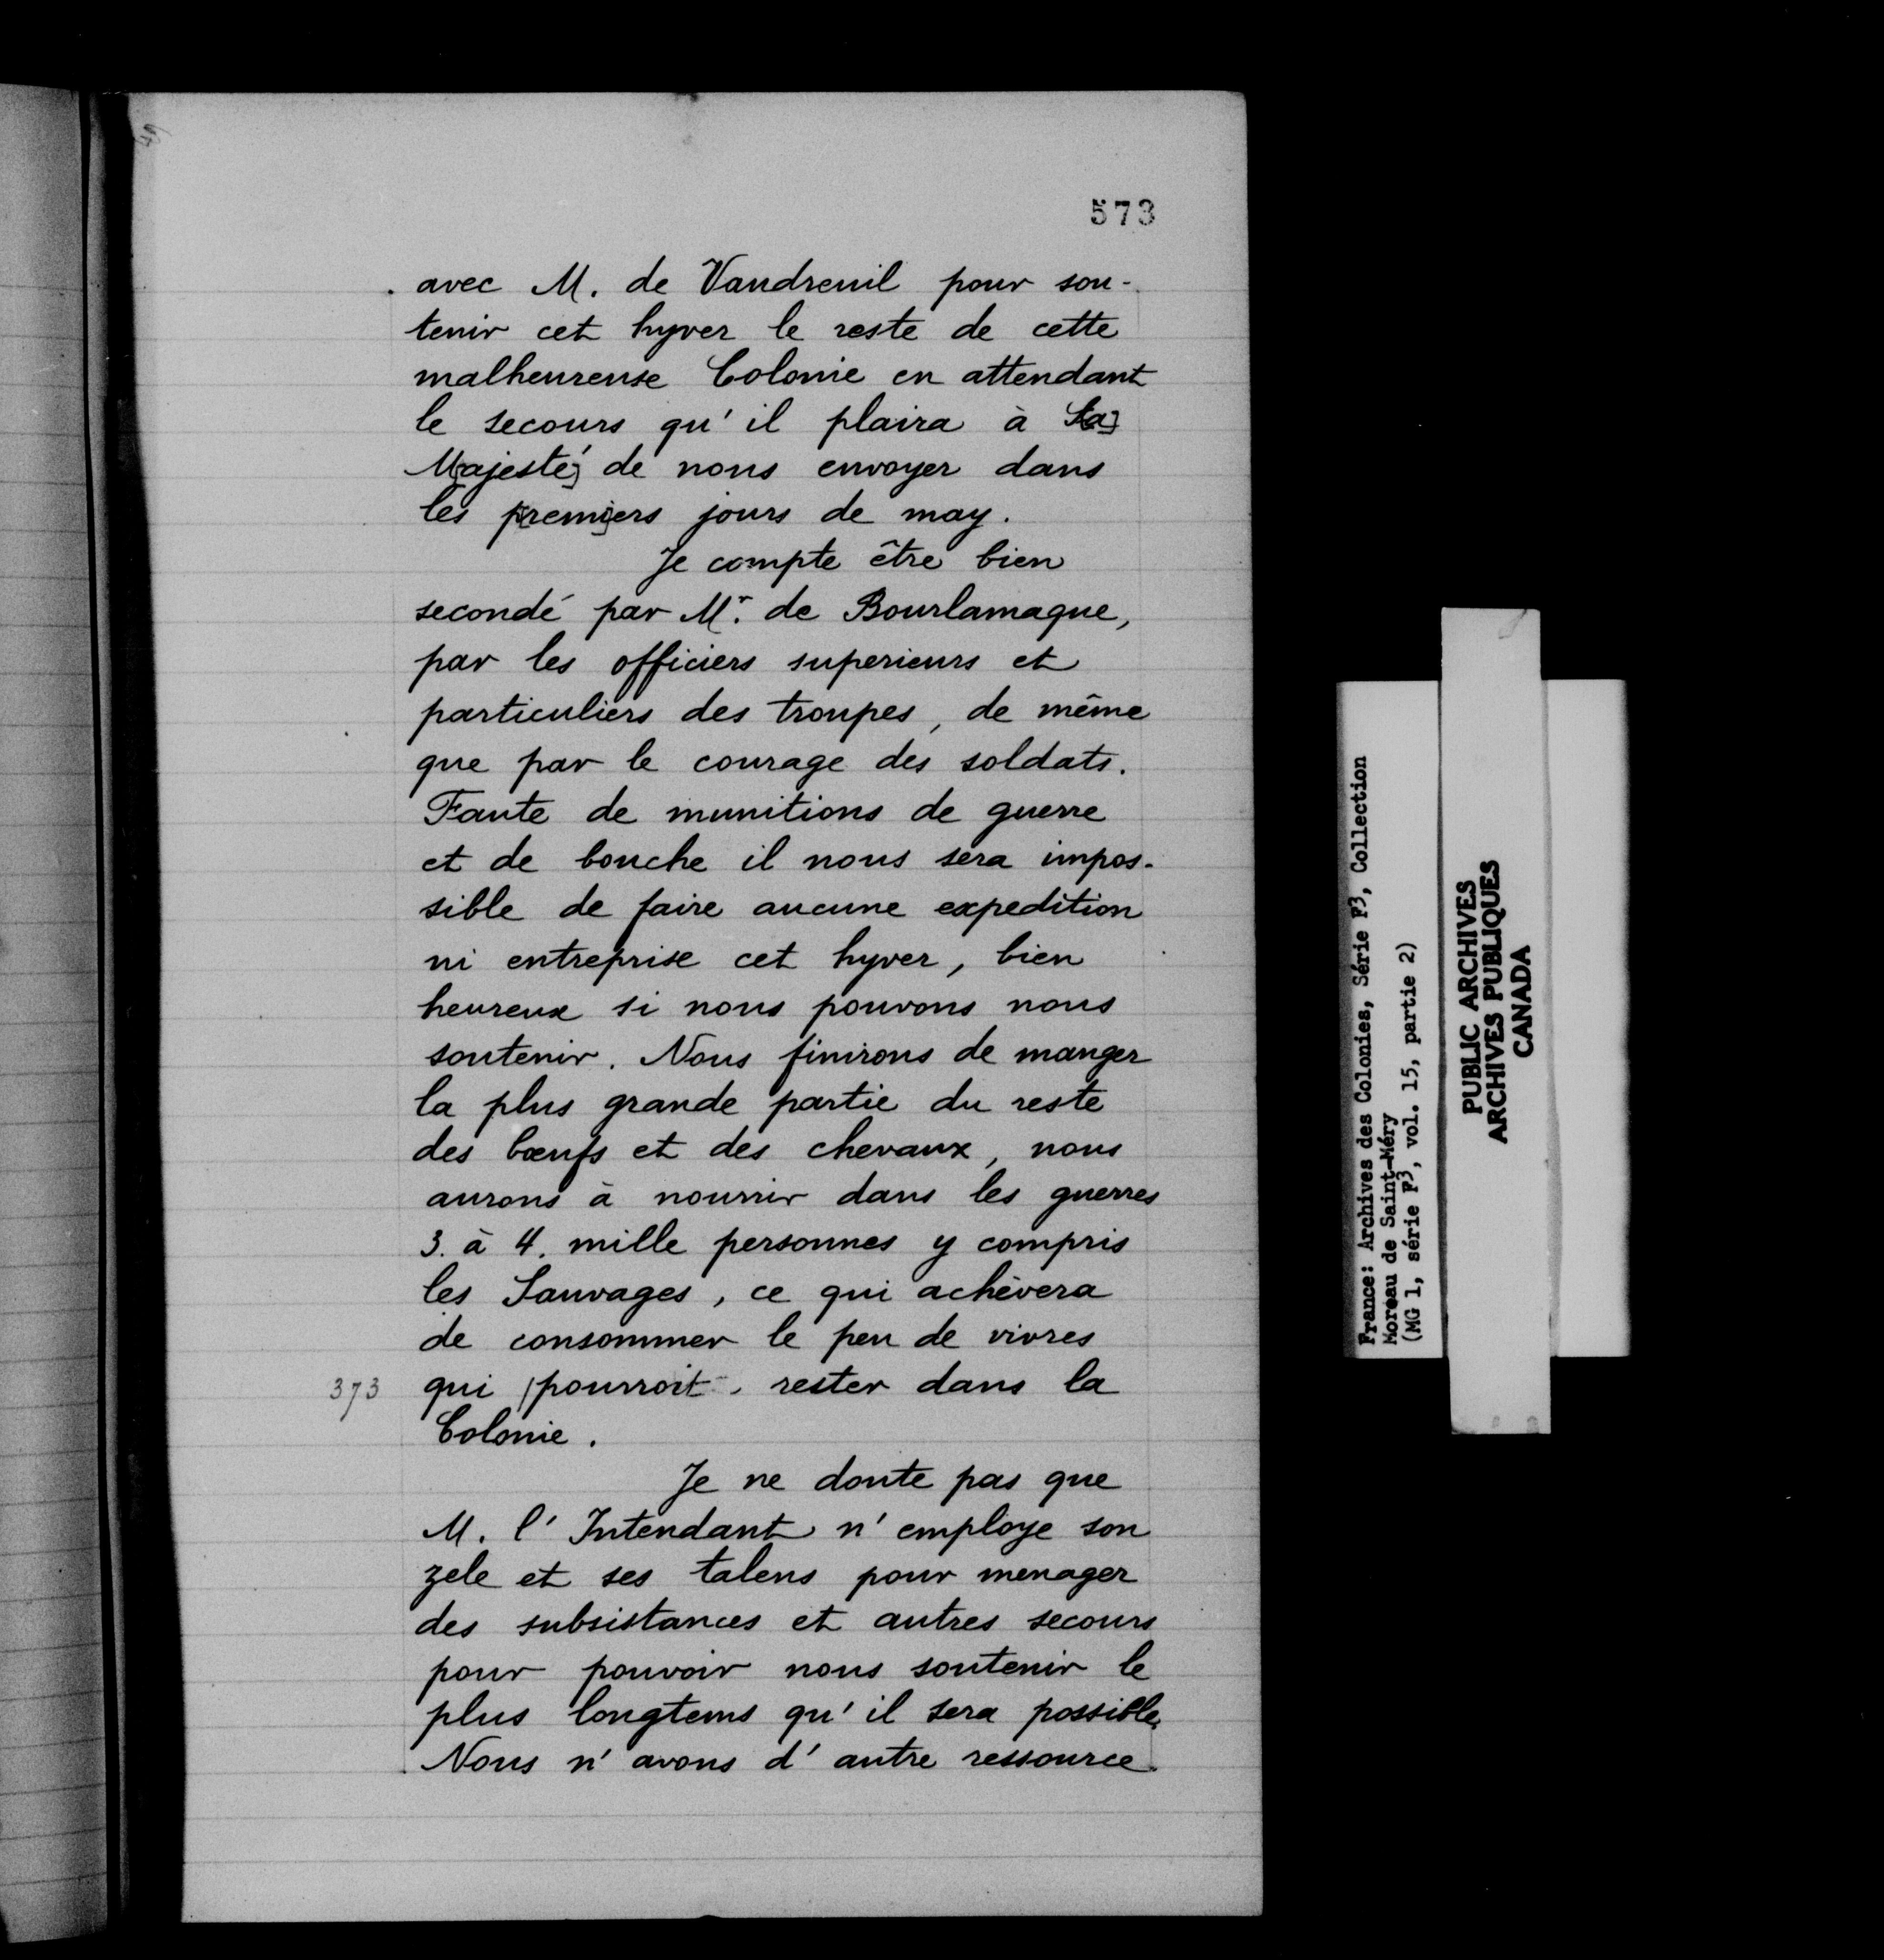 573
avec M. de Vaudreuil pour sou-
tenir cet hyver le reste de cette
malheureuse Colonie en attendant
le secours qu'il plaira à S[a]
M[ajesté] de nous envoyer dans
les p[remi]ers jours de may.
Je compte être bien
secondé par Mr. de Bourlamaque,
par les officiers superieurs et
particuliers des troupes, de même
que par le courage des soldats.
Faute de munitions de guerre
et de bouche il nous sera impos-
sible de faire aucune expedition
ni entreprise cet hyver, bien
heureux si nous pouvons nous
soutenir. Nous finirons de manger
la plus grande partie du reste
des bœufs et des chevaux, nous
aurons à nourrir dans les guerres
3. à 4. mille personnes y compris
les Sauvages, ce qui achèvera
de consommer le peu de vivres
373 qui /pourroit rester dans la
Colonie.
Je ne doute pas que
M. l'Intendant n'employe son
zele et ses talens pour menager
des subsistances et autres secours
pour pouvoir nous soutenir le
plus longtems qu'il sera possible.
Nous n'avons d'autre ressource
France: Archives des Colonies, Série F3, Collection
Moreau de Saint-Méry
(MG 1, série F3, vol. 15, partie 2)
PUBLIC ARCHIVES
ARCHIVES PUBLIQUES
CANADA